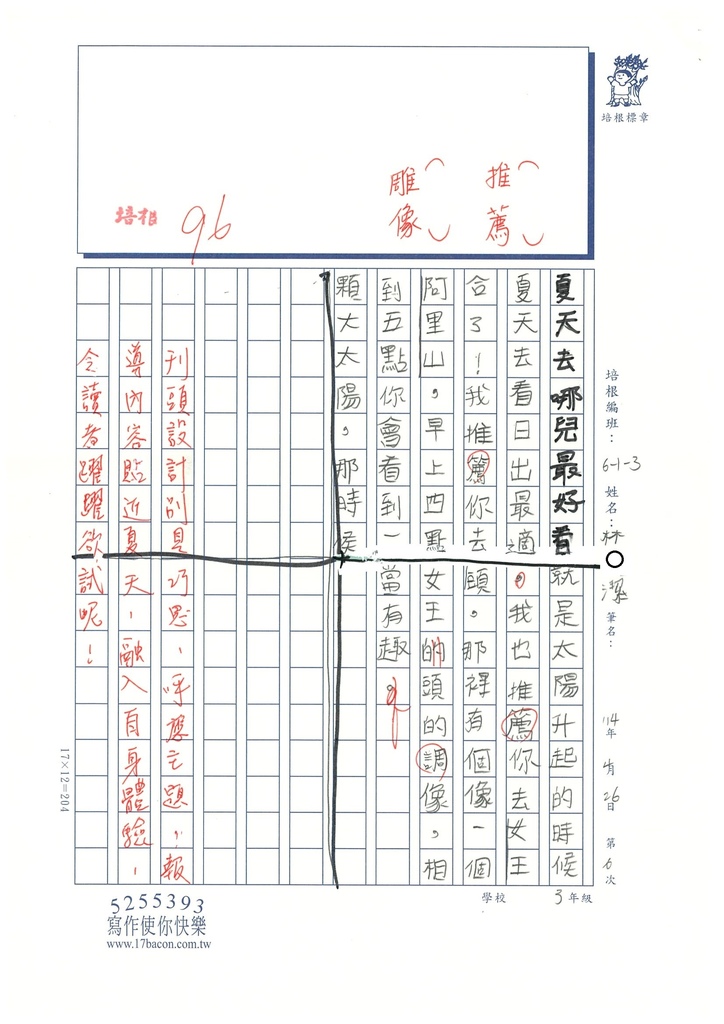 培根標章
推薦
雕像
培根 96
培根編班：6-1-3 姓名：林○潔 筆名：
114年 4月 26日 第6次
3年級
學校
夏天去哪兒最好看
夏天去看日出最適
合了！我推薦你去
阿里山，早上四點
到五點你會看到一
顆大太陽，那時侯
就是太陽升起的時候
。我也推薦你去女王
頭。那裡有個像一個
女王的頭的調像，相
當有趣。
刊頭設計別具巧思，呼應主題；報
導內容貼近夏天，融入自身體驗，
令讀者躍躍欲試呢！
17×12=204
5255393
寫作使你快樂
www.17bacon.com.tw